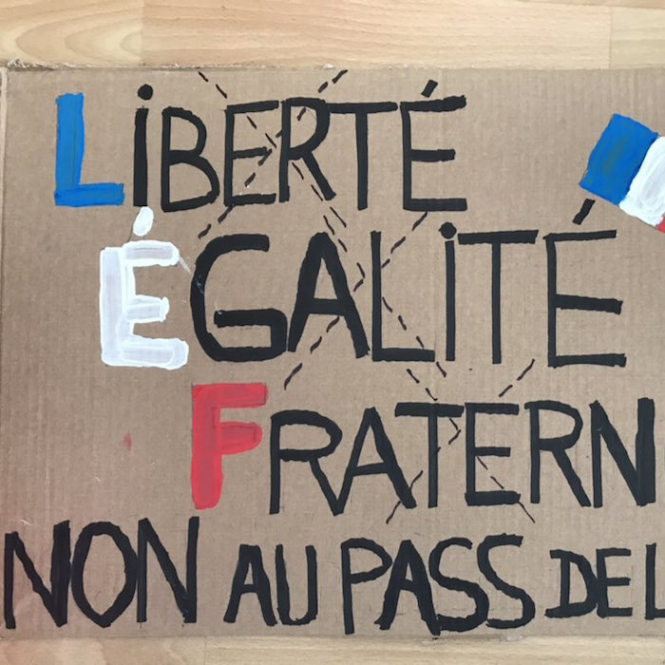 LiBERTÉ
ÉGALiTÉ
FRATERN
NON AU PASS DEL